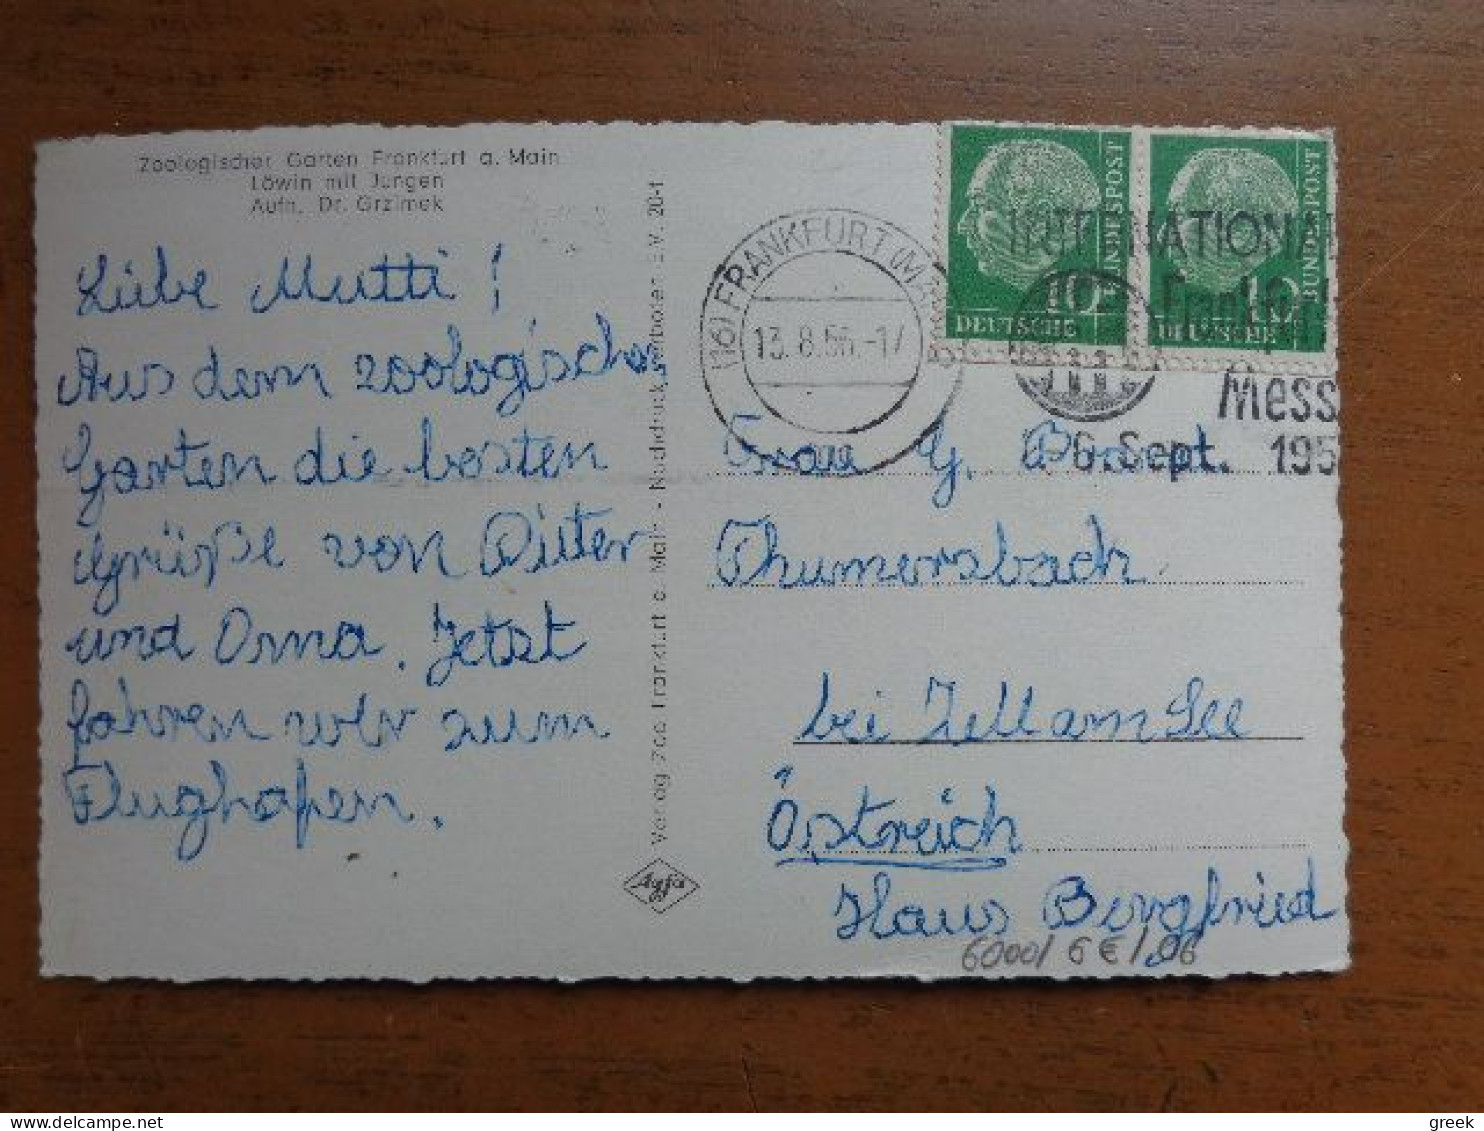 Zoologischer Garten Frankfurt a. Main
Löwin mit Jungen
Aufn. Dr. Grzimek
Liebe Mutti!
Aus dem zoologischen
Garten die besten
Grüße von Dieter
und Oma. Jetzt
fahren wir zum
Flughafen.
Verlag Zoo Frankfurt a. Main - Nachdruck verboten E.V. 20-1
Agfa
(16) FRANKFURT (MAIN)
13.8.56.-17
DEUTSCHE
BUNDESPOST
10
DEUTSCHE
BUNDESPOST
10
INTERNATIONA
Frankfurt
Mess
6. Sept. 195
Frau G.
Thumersbach
bei Zell am See
Östreich
Haus Bergfried
6000/ 6 € /
greek